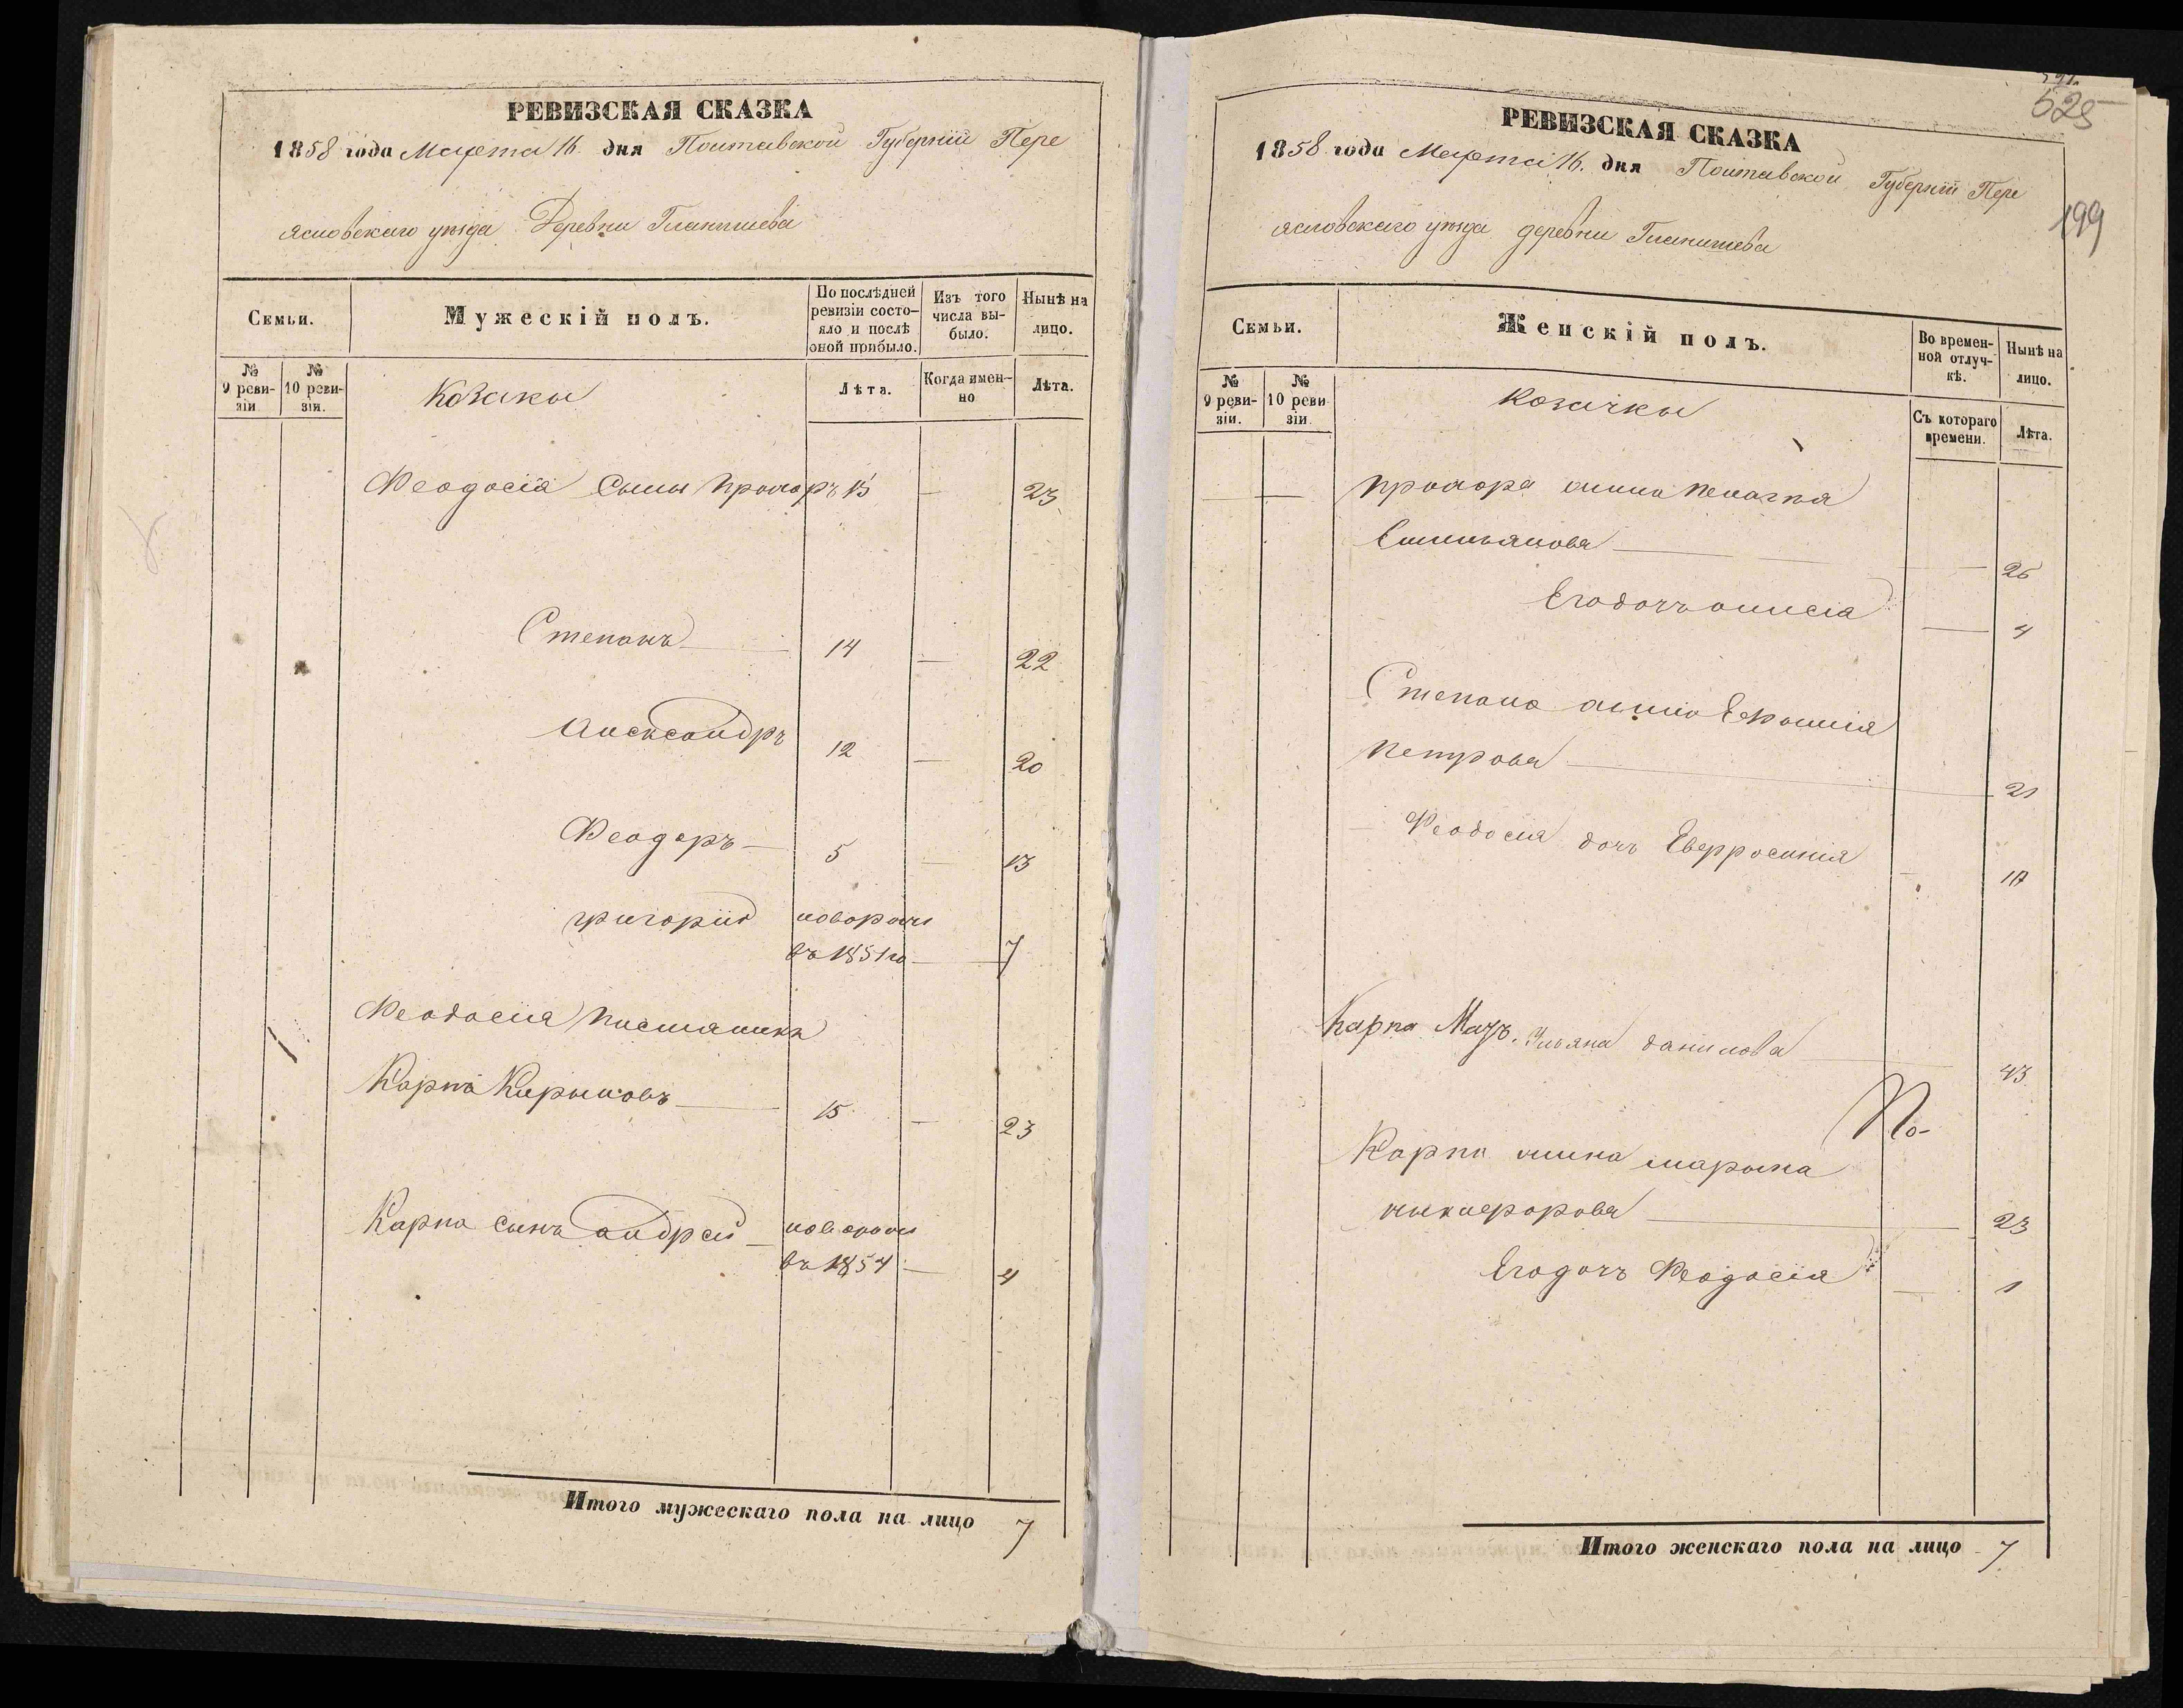 РЕВИЗСКАЯ СКАЗКА
1858 года Марта 16 дня Полтавской Губерніи Пере
яславскаго уезда Деревни Гланишева
Семьи.
Мужескій полъ.
По послѣдней ревизіи состояло и послѣ оной прибыло.
Изъ того числа выбыло.
Нынѣ на лицо.
№ 9 ревизіи
№ 10 ревизіи.
Козаки
Лѣта.
Когда именно
Лѣта.
Феодосія сыны Прохоръ 15 — 23
Степанъ — 14 — 22
Александръ 12 — 20
Феодоръ — 5 — 13
Григорій новорож
въ 1851го — 7
Феодосія
Карпъ Кириловъ — 15 — 23
Карпа сынъ Андрей — новорож
въ 1854 — 4
Итого мужескаго пола на лицо 7
525
199
РЕВИЗСКАЯ СКАЗКА
1858 года Марта 16. дня Полтавской Губерніи Пере
яславскаго уезда деревни Гланишева
Семьи.
Женскій полъ.
Во временной отлучкѣ.
Нынѣ на лицо.
№ 9 ревизіи.
№ 10 ревизіи.
Козачки
Съ котораго времени.
Лѣта.
Прохора жина Пелагея
Емильянова — 25
Его дочъ Анисія — 4
Степана жина Евхимія
Петрова — 21
Феодосія дочъ Евфросинія — 18
Карпа Мать. Ульяна Данилова — 43
По-
Карпа жина Марина
Никифорова — 23
Его дочъ Феодосія — 1
Итого женскаго пола на лицо 7